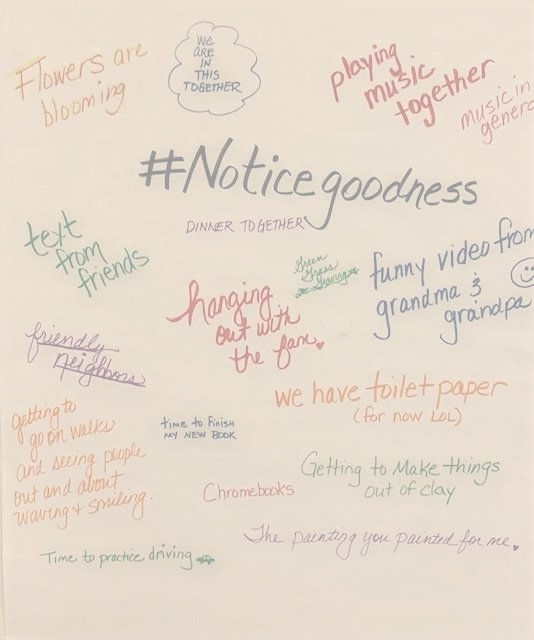 Flowers are
blooming
WE
ARE
IN
THIS
TOGETHER
playing
music
together
music in
genera
#Noticegoodness
DINNER TOGETHER
text
from
friends
Green
Grass
Growing
funny video from
grandma &
grandpa
hanging
out with
the fam
friendly
neighbors
we have toilet paper
(for now LOL)
getting to
go on walks
and seeing people
out and about
waving + smiling.
time to finish
MY NEW BOOK
Getting to Make things
out of clay
Chromebooks
The painting you painted for me.
Time to practice driving